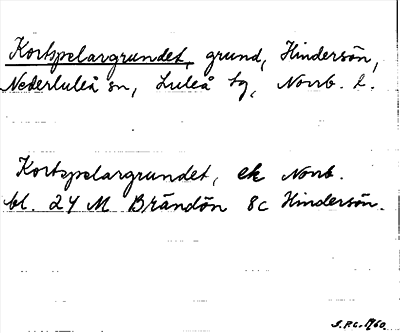 Kortspelargrundet, grund, Hindersön,
Nederluleå sn, Luleå tg, Norrb. l.
Kortspelargrundet, ek Norrb.
bl. 24 M Brändön 8c Hindersön.
1960